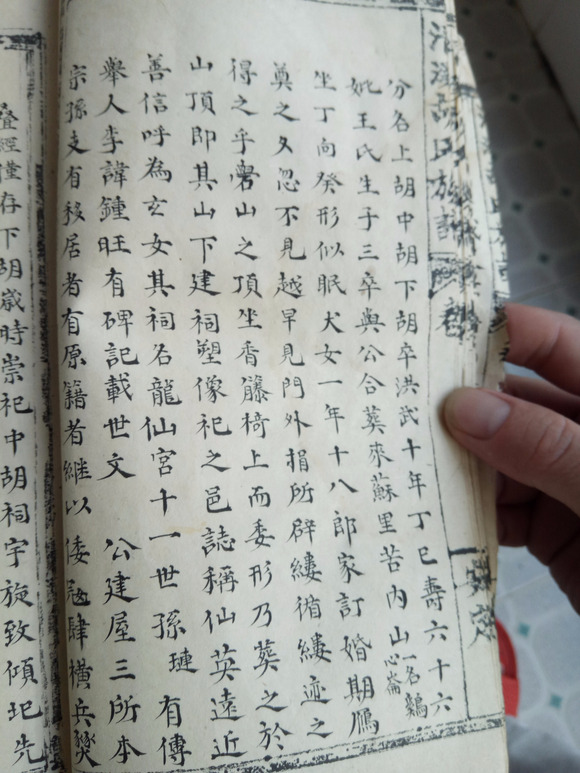 胡氏族譜
分名上胡中胡下胡卒洪武十年丁巳壽六十六
妣王氏生于三卒與公合葬來蘇里苦內山一名鷄心崙
坐丁向癸形似眠犬女一年十八郎家訂婚期鴈
奠之夕忽不見越早見門外捐所辟縷循縷迹之
得之乎礐山之頂坐香籐椅上而委形乃葬之於
山頂即其山下建祠塑像祀之邑誌稱仙英遠近
善信呼為玄女其祠名龍仙宮十一世孫璉有傳
舉人李諱鍾旺有碑記載世文 公建屋三所本
宗孫支有移居者有原籍者継以倭冦肆橫兵燹
疊經僅存下胡歲時崇祀中胡祠宇旋致傾圯先